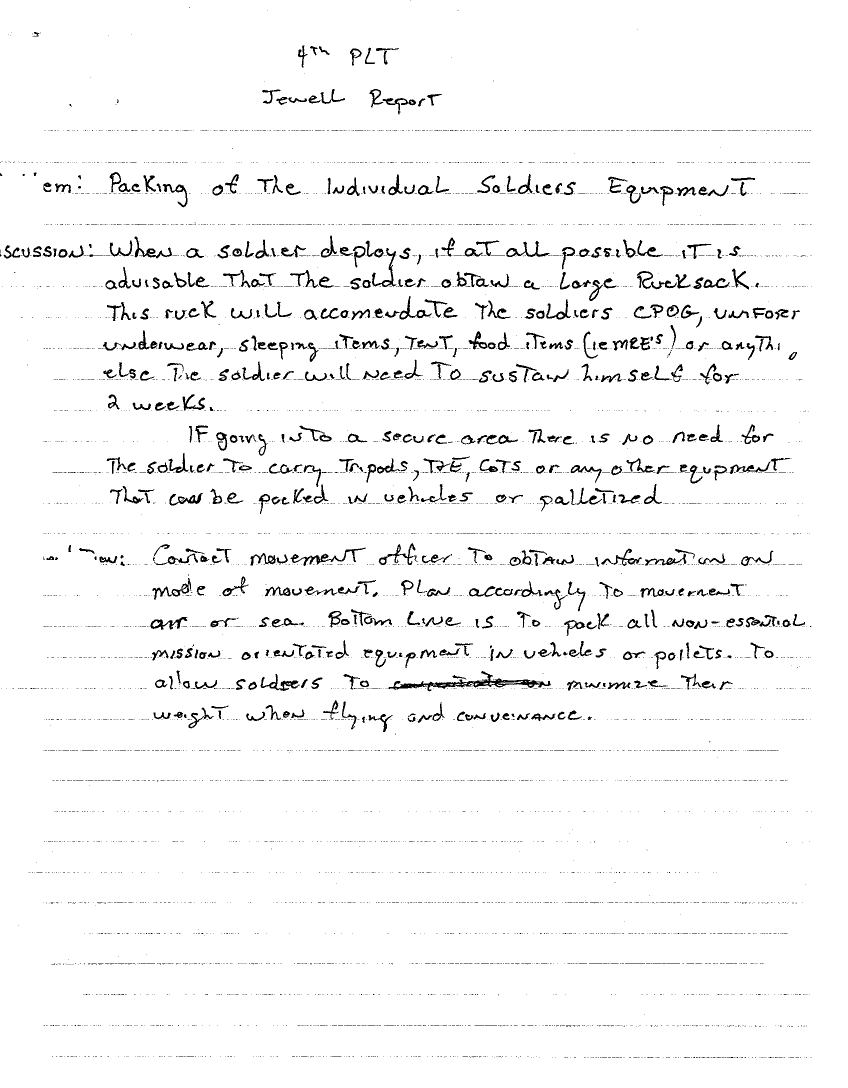 4TH PLT
Jewell Report
em: Packing of The Individual Soldiers Equipment
scussion: When a soldier deploys, if at all possible it is
advisable That The soldier obtain a Large Rucksack.
This ruck will accomendate The soldiers CPOG, uniforms
underwear, sleeping items, Tent, food items (ie MRE's) or anythi
else The soldier will need To sustain himself for
2 weeks.
IF going into a secure area There is no need for
The soldier To carry Tripods, T&E, Cots or any other equpment
That can be packed in vehicles or palletized
Contact movement officer To obtain information on
mode of movement. Plan accordingly To movement
air or sea. Bottom Line is To pack all non-essential
mission orientated equipment in vehicles or pallets. To
allow soldiers To minimize Their
weight when flying and conveinance.